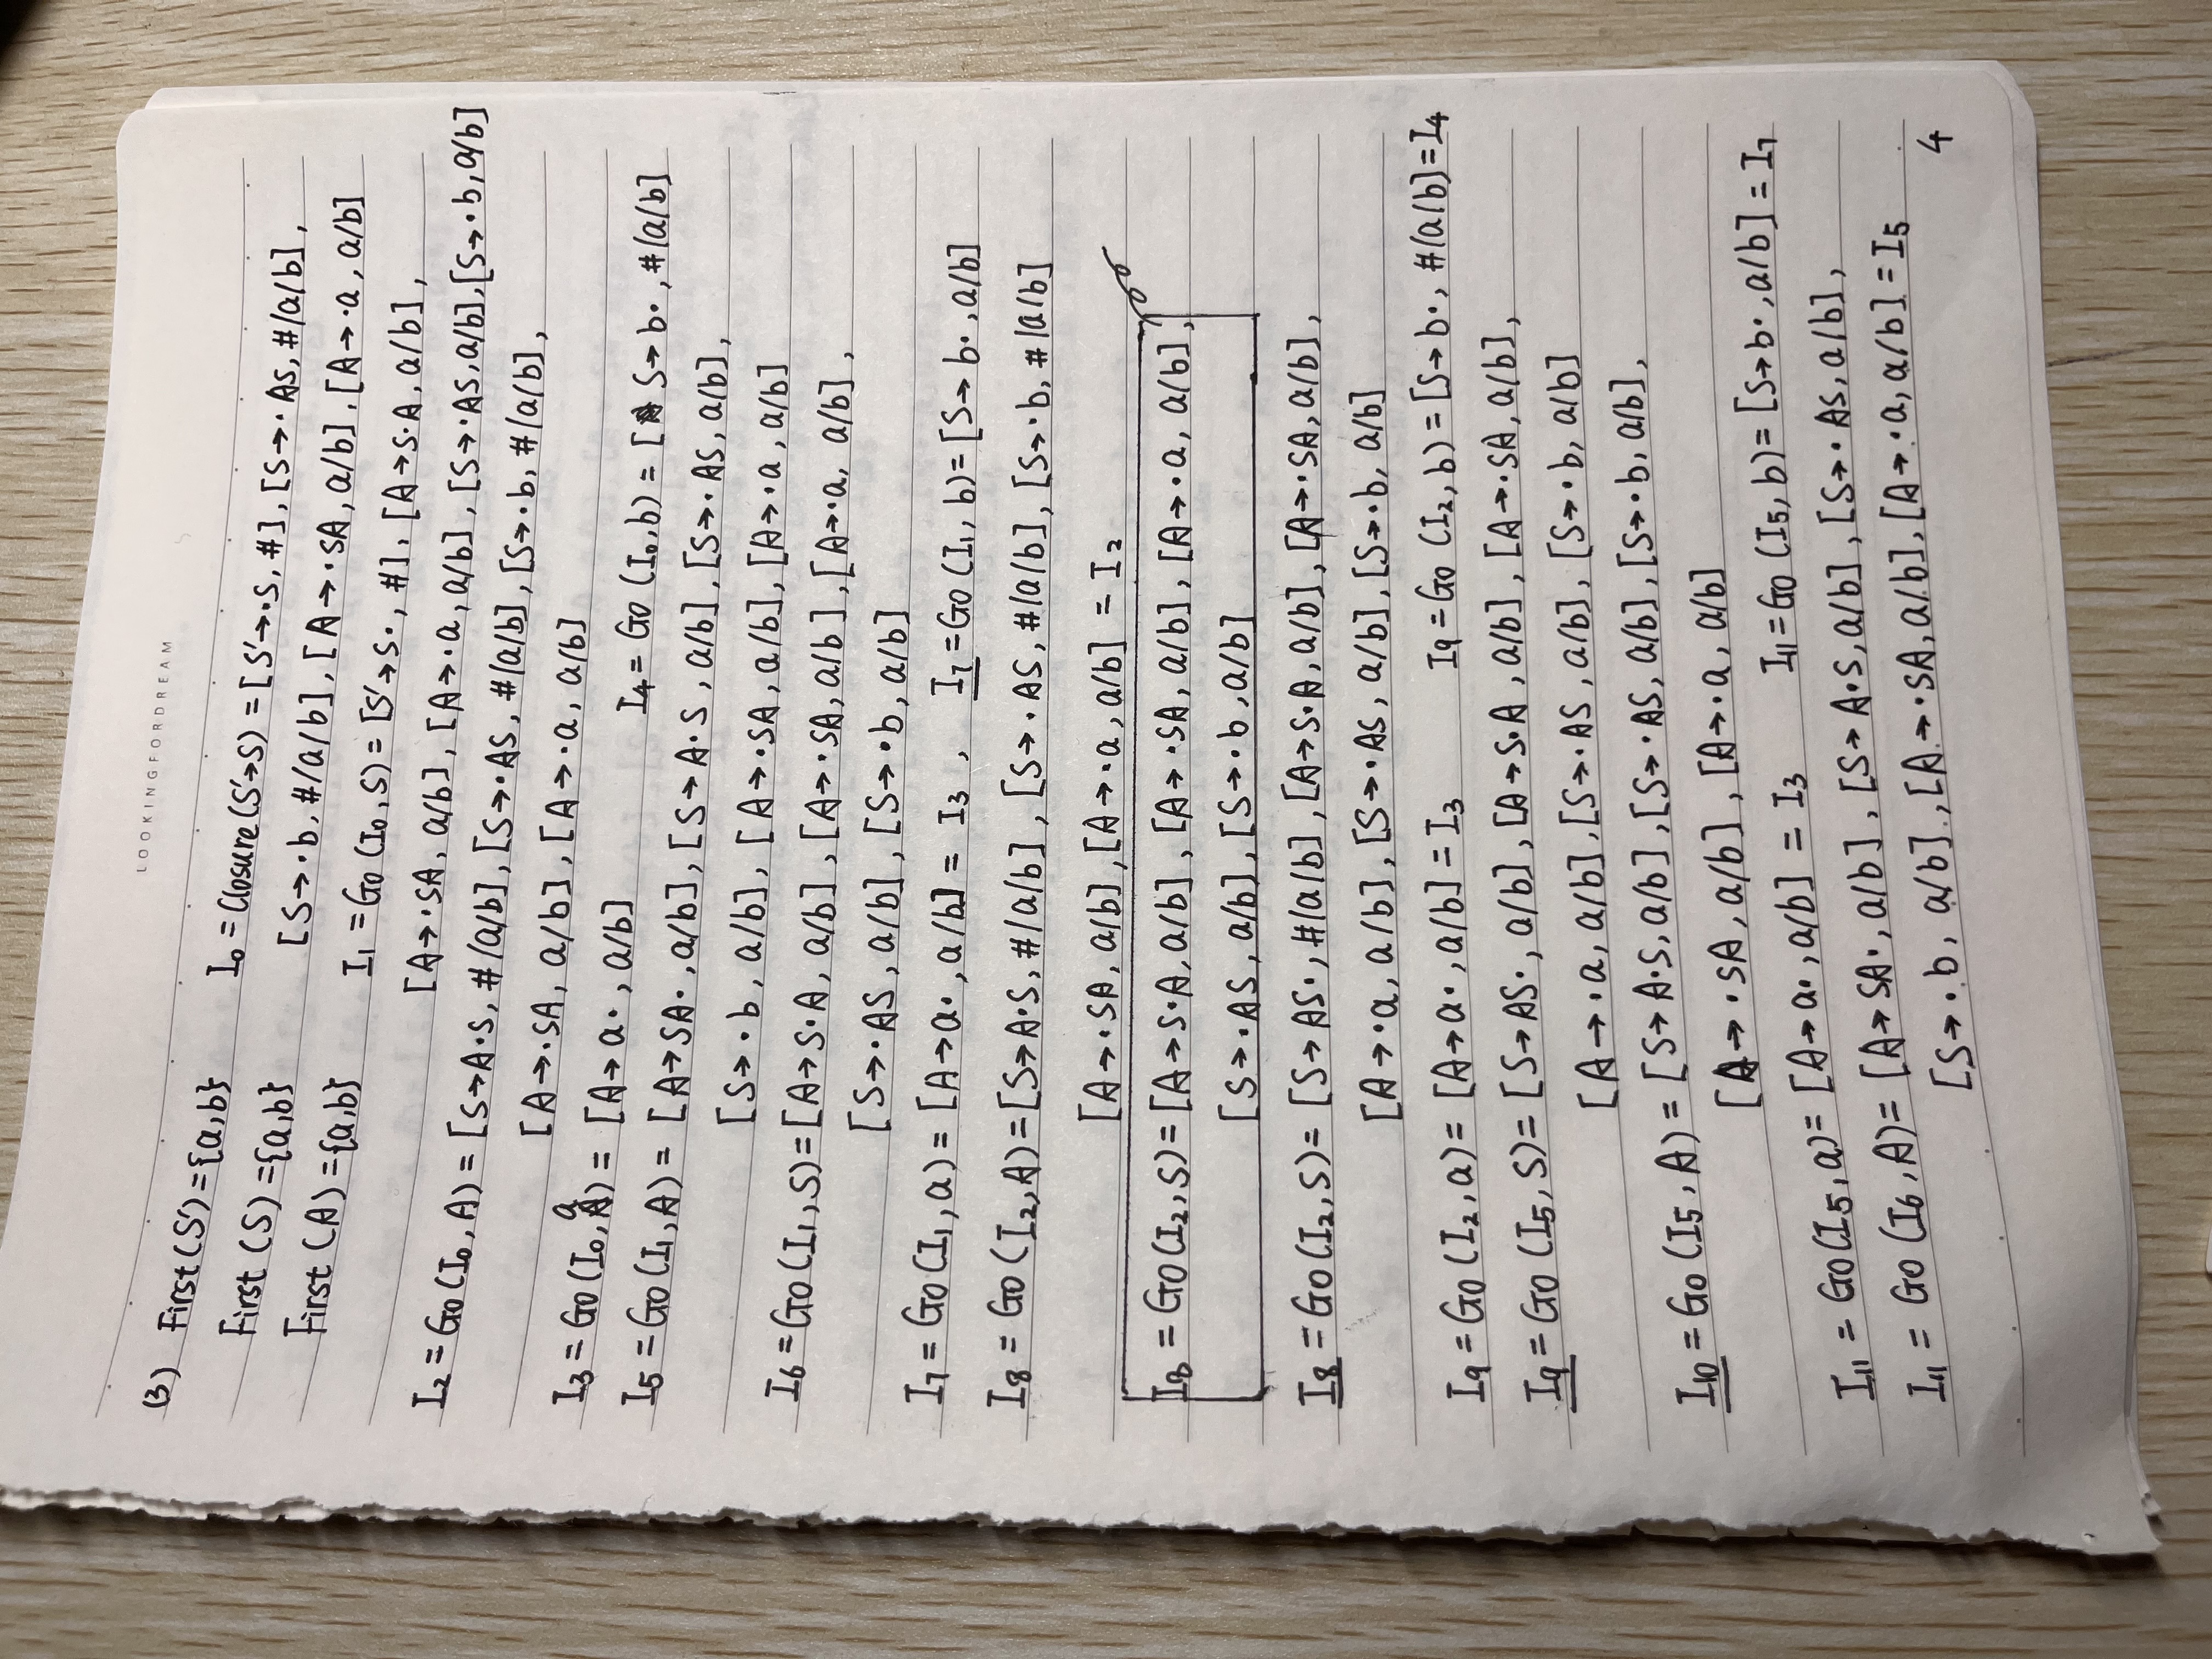 LOOKINGFORDREAM
(3) First(S')={a,b}
First(S)={a,b}
First(A)={a,b}
I₀=Closure(S'→S)=[S'→·S,#],[S→·AS,#/a/b],
[S→·b,#/a/b],[A→·SA,a/b],[A→·a,a/b]
I₁=Go(I₀,S)=[S'→S·,#],[A→S·A,a/b],
[A→·SA,a/b],[A→·a,a/b],[S→·AS,a/b],[S→·b,a/b]
I₂=Go(I₀,A)=[S→A·S,#/a/b],[S→·AS,#/a/b],[S→·b,#/a/b],
[A→·SA,a/b],[A→·a,a/b]
I₃=Go(I₀,a)=[A→a·,a/b] I₄=Go(I₀,b)=[S→b·,#/a/b]
I₅=Go(I₁,A)=[A→SA·,a/b],[S→A·S,a/b],[S→·AS,a/b],
[S→·b,a/b],[A→·SA,a/b],[A→·a,a/b]
I₆=Go(I₁,S)=[A→S·A,a/b],[A→·SA,a/b],[A→·a,a/b],
[S→·AS,a/b],[S→·b,a/b]
I₇=Go(I₁,a)=[A→a·,a/b]=I₃, I₇=Go(I₁,b)=[S→b·,a/b]
I₈=Go(I₂,A)=[S→A·S,#/a/b],[S→·AS,#/a/b],[S→·b,#/a/b]
[A→·SA,a/b],[A→·a,a/b]=I₂
I₈=Go(I₂,S)=[A→S·A,a/b],[A→·SA,a/b],[A→·a,a/b],
[S→·AS,a/b],[S→·b,a/b]
I₈=Go(I₂,S)=[S→AS·,#/a/b],[A→S·A,a/b],[A→·SA,a/b],
[A→·a,a/b],[S→·AS,a/b],[S→·b,a/b]
I₉=Go(I₂,a)=[A→a·,a/b]=I₃ I₉=Go(I₂,b)=[S→b·,#/a/b]=I₄
I₉=Go(I₅,S)=[S→AS·,a/b],[A→S·A,a/b],[A→·SA,a/b],
[A→·a,a/b],[S→·AS,a/b],[S→·b,a/b]
I₁₀=Go(I₅,A)=[S→A·S,a/b],[S→·AS,a/b],[S→·b,a/b],
[A→·SA,a/b],[A→·a,a/b]
I₁₁=Go(I₅,a)=[A→a·,a/b]=I₃ I₁₁=Go(I₅,b)=[S→b·,a/b]=I₇
I₁₁=Go(I₆,A)=[A→SA·,a/b],[S→A·S,a/b],[S→·AS,a/b],
[S→·b,a/b],[A→·SA,a/b],[A→·a,a/b]=I₅
4